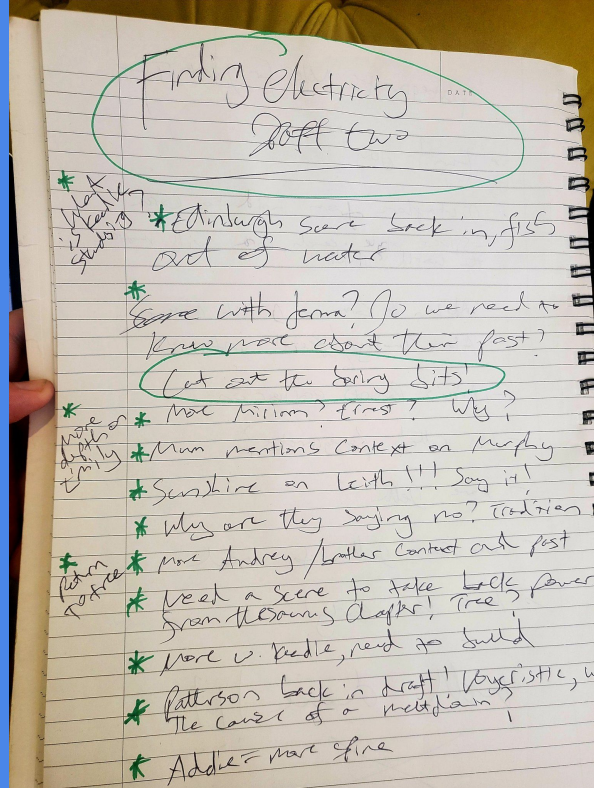 Finding electricity
Draft two
DATE
* What
is Keedie
studying?
* Edinburgh scene back in, fish
out of water
*
Scene with Jenna? Do we need to
know more about their past?
Cut out the boring bits!
* More
depth on
Emily
* More Miriam? Ernest? Why?
* Mum mentions context on Murphy
* Sunshine on Leith!!! Say it!
* Why are they saying no? Tradition
* Return
to tree
* More Audrey / brother context and past
* Need a scene to take back power
from thesaurus chapter! Tree?
* More w. Keedie, need to build
* Patterson back in draft! Voyeristic,
the cause of a meltdown?
* Addie = more spine